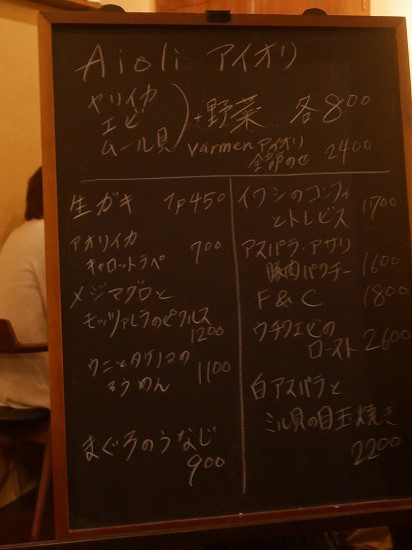 Aioli アイオリ
ヤリイカ
エビ
ムール貝
+野菜 各800
Varmen アイオリ
全部のせ 2400
生ガキ 1p450
アオリイカ
キャロットラペ 700
メジマグロと
モッツァレラのピクルス
1200
ウニとタケノコの
そうめん 1100
まぐろのうなじ
900
イワシのコンフィ
とトレビス 1700
アスパラ・アサリ
豚肉パクチー 1600
F&C 1800
ウチワエビの
ロースト 2600
白アスパラと
ミル貝の目玉焼き
2200